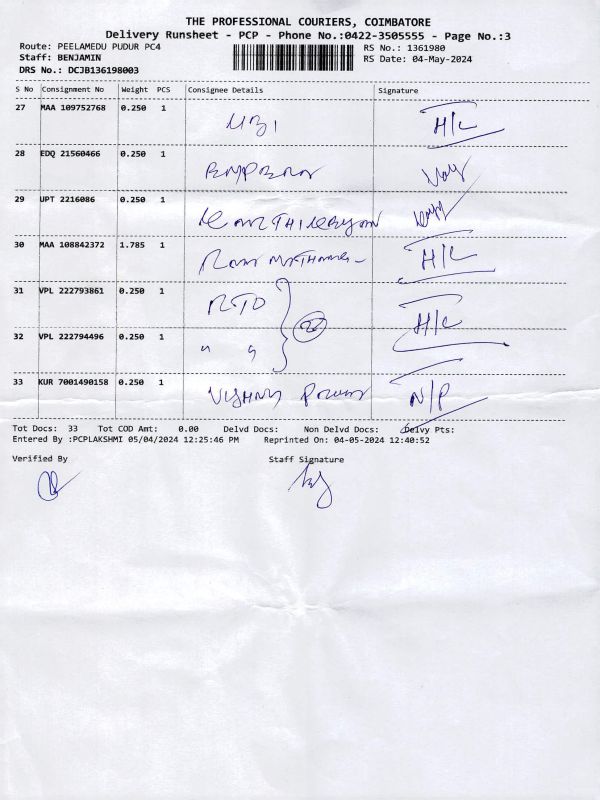 THE PROFESSIONAL COURIERS, COIMBATORE
Delivery Runsheet - PCP - Phone No.:0422-3505555 - Page No.:3
Route: PEELAMEDU PUDUR PC4
RS No.: 1361980
Staff: BENJAMIN
RS Date: 04-May-2024
DRS No.: DCJB136198003
S No Consignment No Weight PCS Consignee Details Signature
27 MAA 109752768 0.250 1 H/C
28 EDQ 21560466 0.250 1
29 UPT 2216086 0.250 1
30 MAA 108842372 1.785 1 H/C
31 VPL 222793861 0.250 1 RTO H/C
32 VPL 222794496 0.250 1 " "
33 KUR 7001490158 0.250 1 N/P
Tot Docs: 33 Tot COD Amt: 0.00 Delvd Docs: Non Delvd Docs: Delvy Pts:
Entered By :PCPLAKSHMI 05/04/2024 12:25:46 PM Reprinted On: 04-05-2024 12:40:52
Verified By Staff Signature